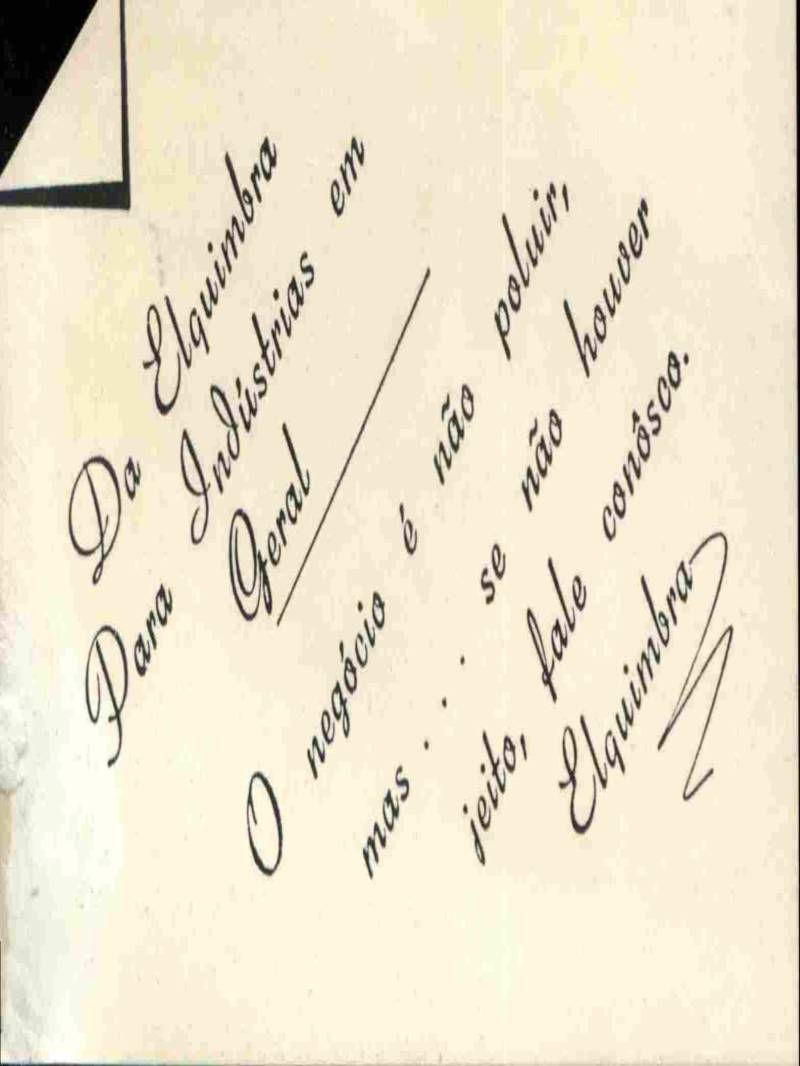 Da Elquimbra
Para Indústrias em
Geral
O negócio é não poluir,
mas . . . se não houver
jeito, fale conôsco.
Elquimbra